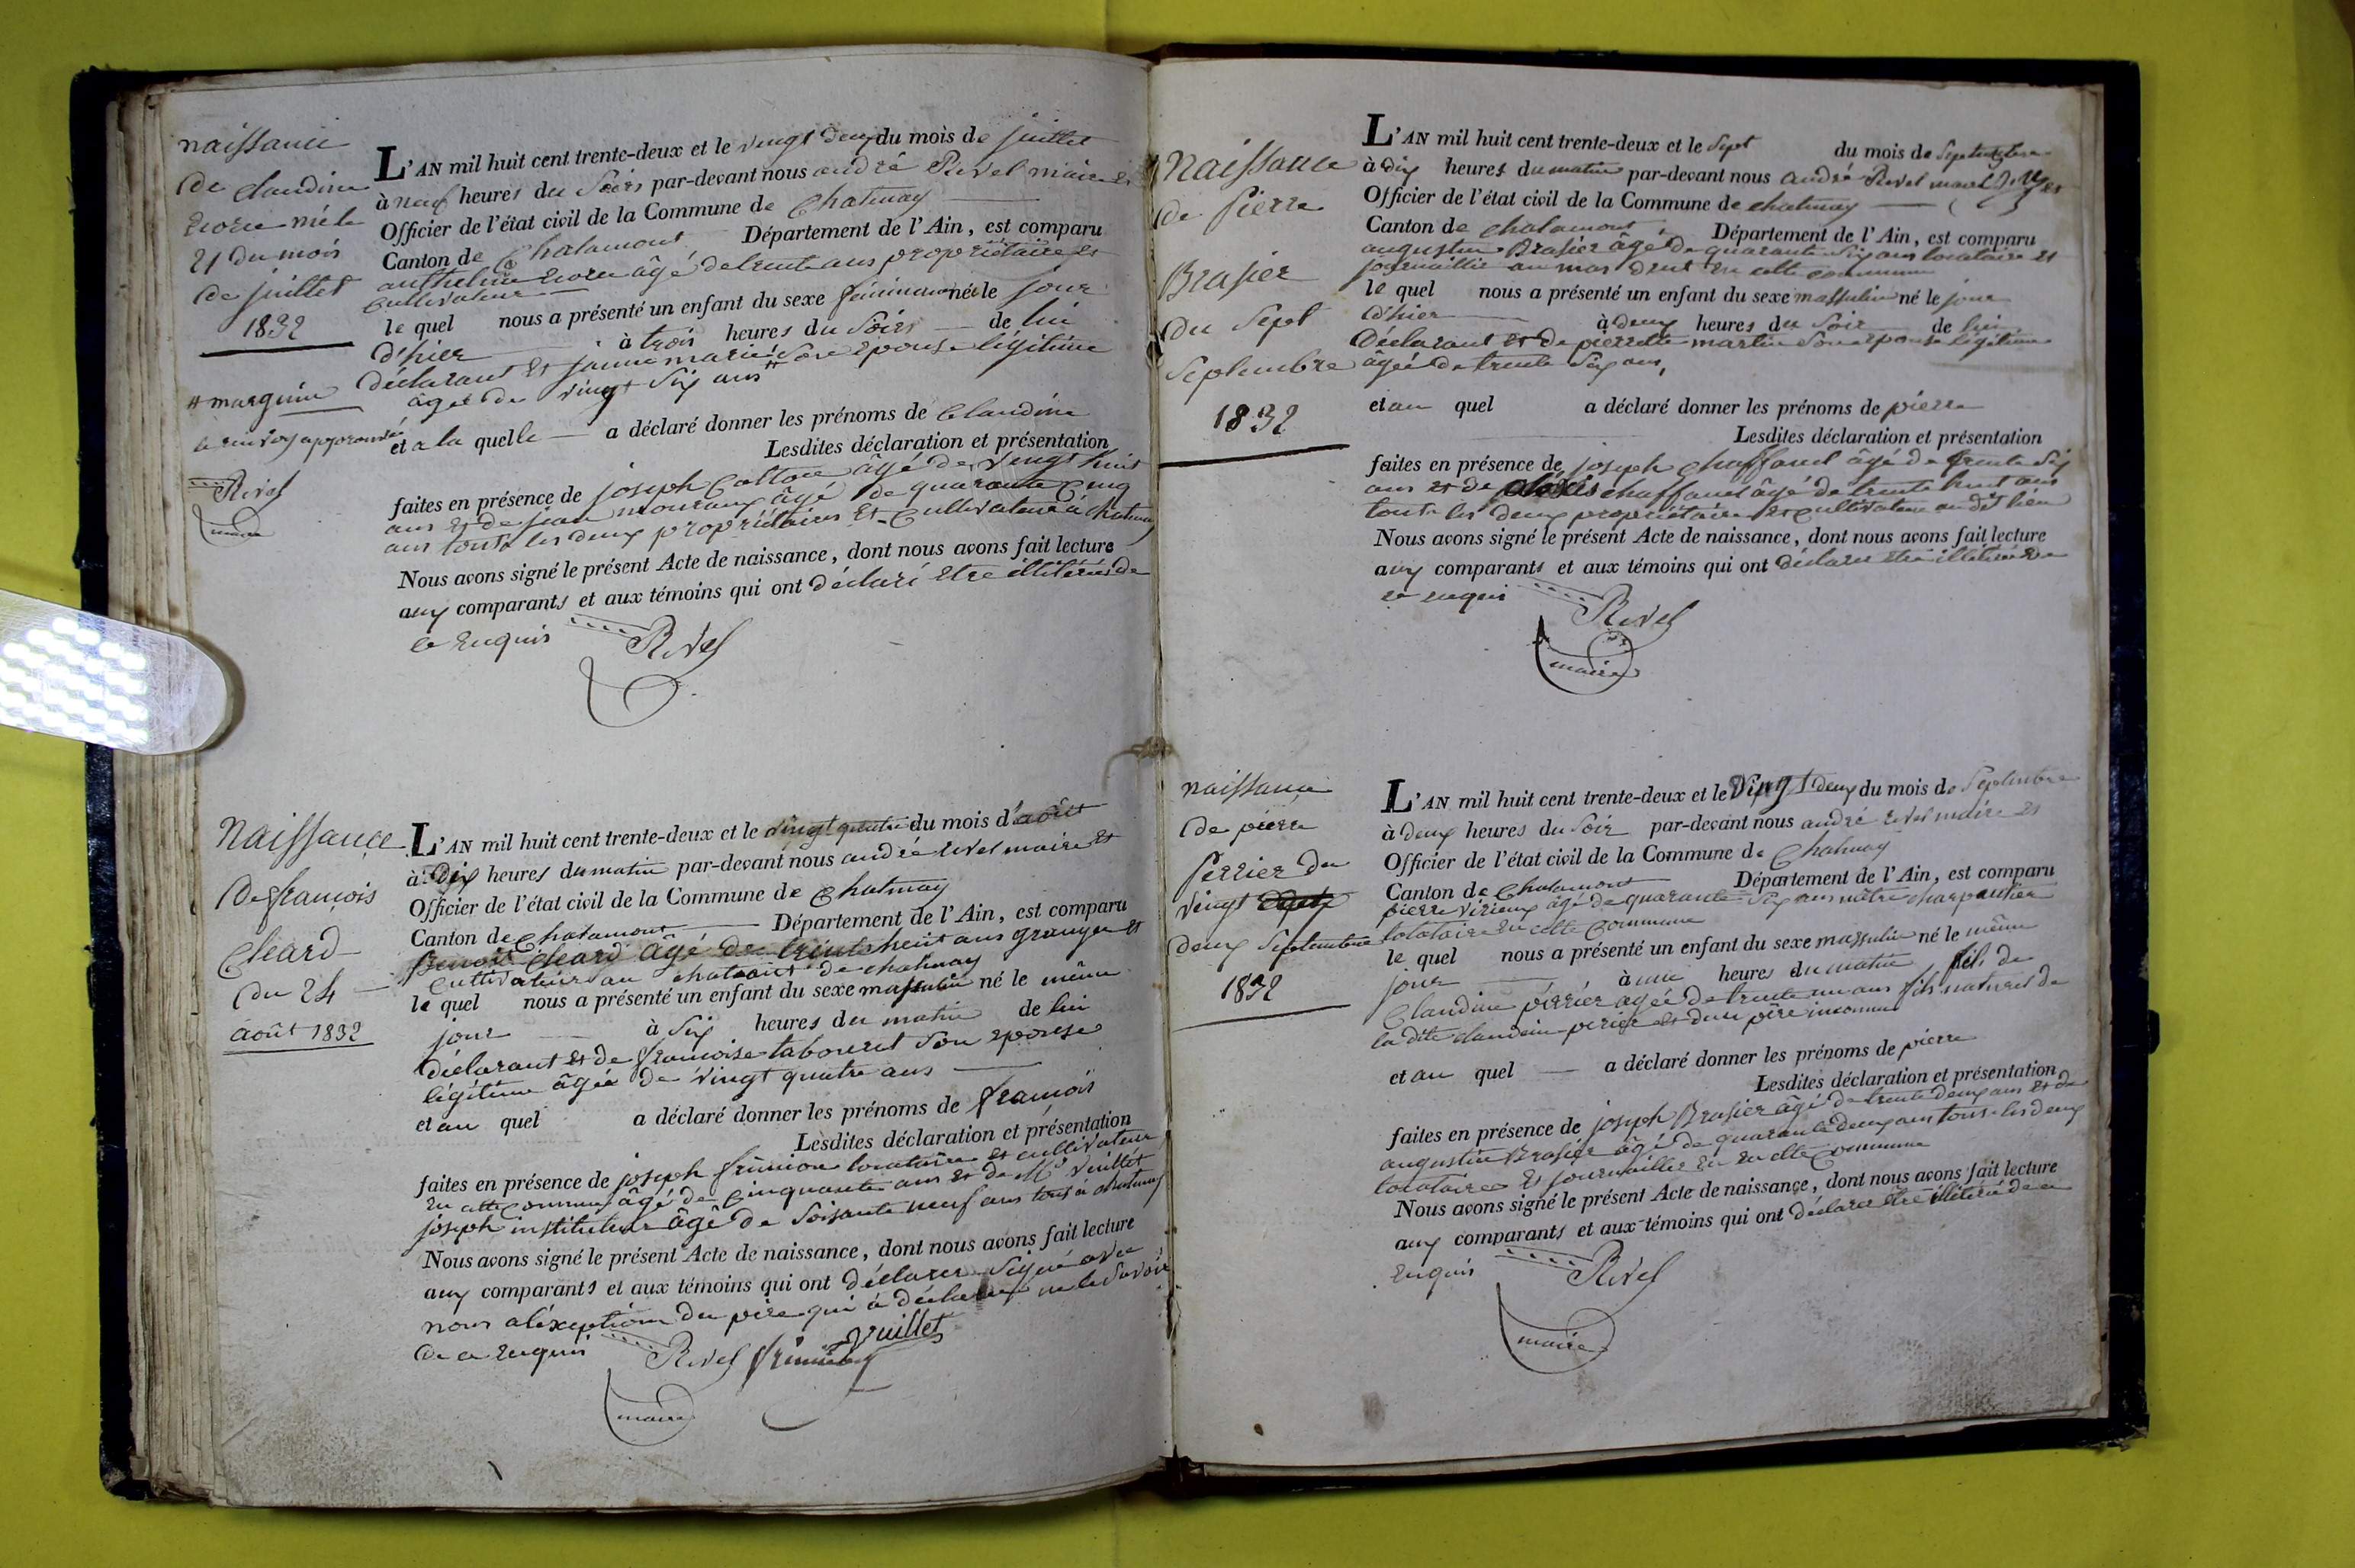 naissance
de claudine
née le
21 du mois
de juillet
1832
marguin
renvoy approuvé
Revel
maire
L'AN mil huit cent trente-deux et le vingt deux du mois de juillet
à neuf heures du Soirs par-devant nous andré Revel maire et
Officier de l'état civil de la Commune de Chatenay
Canton de Chalamont Département de l'Ain, est comparu
anthelme âgé de trente ans propriétaire et
cultivateur
le quel nous a présenté un enfant du sexe féminin né le jour
d'hier à trois heures du Soirs de lui
déclarant et janne marie Son épouse légitime
âgée de vingt Six ans
et a la quelle a déclaré donner les prénoms de Claudine
Lesdites déclaration et présentation
faites en présence de joseph âgé de vingt huit
ans et de jean âgé de quarante Cinq
ans touts les deux propriétaires et Cultivateur à chatenay
Nous avons signé le présent Acte de naissance, dont nous avons fait lecture
aux comparants et aux témoins qui ont déclaré etre illitérés de
ce Enquis
Revel
Naissance
de francois
Cleard
du 24
août 1832
L'AN mil huit cent trente-deux et le vingt quatre du mois d'août
à Dix heures du matin par-devant nous andré revel maire et
Officier de l'état civil de la Commune de Chatenay
Canton de Chalamont Département de l'Ain, est comparu
Benoit Cleard âgé de trente huit ans granger et
Cultivateur au de chatenay
le quel nous a présenté un enfant du sexe massulin né le même
jour à Six heures du matin de lui
déclarant et de francoise taboueret Son epouse
légitime âgée de vingt quatre ans
et au quel a déclaré donner les prénoms de francois
Lesdites déclaration et présentation
faites en présence de joseph locataire et cultivateur
en cette Commune âgé de Cinquante ans et de Mr Vuillet
joseph instituteur âgé de Soixante neuf ans tous à chatenay
Nous avons signé le présent Acte de naissance, dont nous avons fait lecture
aux comparants et aux témoins qui ont déclarer Signé avec
nous aléxeption du père qui à déclaré ne le Savoir
de ce enquis
Revel Vuillet
maire
Naissance
de Pierre
Brasier
du Sept
Septembre
1832
L'AN mil huit cent trente-deux et le Sept du mois de Septembre
à dix heures du matin par-devant nous andré Revel
Officier de l'état civil de la Commune de chatenay
Canton de chalamont Département de l'Ain, est comparu
augustin Brasier âgé de quarante Six ans locataire et
journaillier au mas en cette commune
le quel nous a présenté un enfant du sexe massulin né le jour
d'hier à deux heures du Soir de lui
Déclarant et de pierrette martin Son epouse légitime
âgée de trente Six ans,
et au quel a déclaré donner les prénoms de pierre
Lesdites déclaration et présentation
faites en présence de joseph Chaffanel âgé de trente Six
ans et de aléxis chaffanel âgé de trente huit ans
touts les deux propriétaire et cultivateur au dit lieu
Nous avons signé le présent Acte de naissance, dont nous avons fait lecture
aux comparants et aux témoins qui ont déclarer etre illitéré de
ce enquis
Revel
maire
naissance
de pierre
Perrier du
vingt
deux Septembre
1832
L'AN mil huit cent trente-deux et le Vingt deux du mois de Septembre
à deux heures du Soir par-devant nous andré revel maire et
Officier de l'état civil de la Commune de Chatenay
Canton de Chalamont Département de l'Ain, est comparu
pierre virieux âgé de quarante Six ans mètre charpantier
locataire en cette Commune
le quel nous a présenté un enfant du sexe massulin né le même
jour à une heures du matin fils de
Claudine périer agée de trente un ans fils naturel de
la dite claudine perier et d'un père inconnu
et au quel a déclaré donner les prénoms de pierre
Lesdites déclaration et présentation
faites en présence de joseph Brasier âgé de trente deux ans et de
augustin Brasier âgé de quarante deux ans tous les deux
locataires et journaillier en cette Commune
Nous avons signé le présent Acte de naissance, dont nous avons fait lecture
aux comparants et aux témoins qui ont déclarer être illitéré de ce
Enquis
Revel
maire